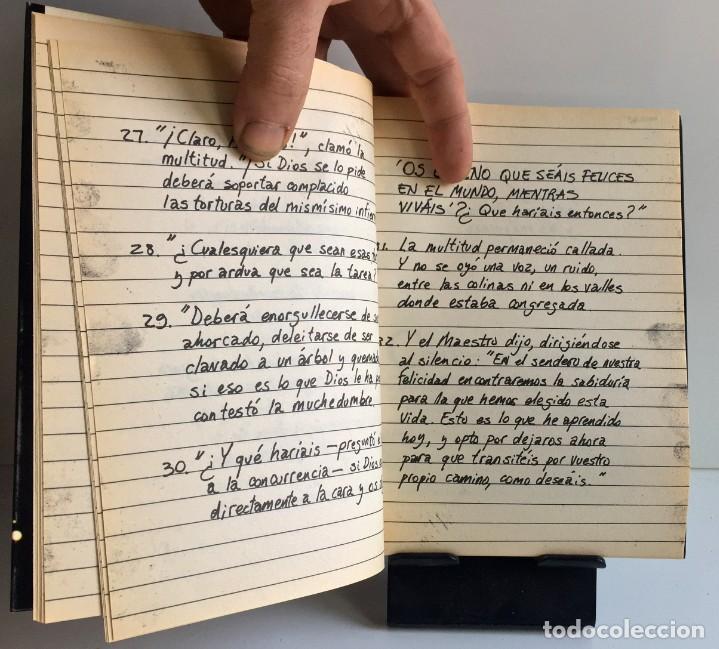 27. "¡Claro, !", clamó la
multitud. "¡Si Dios se lo pide
deberá soportar complacido
las torturas del mismísimo
28. "¿Cualesquiera que sean esas
y por ardua que sea la tarea?
29. "Deberá enorgullecerse de
ahorcado, deleitarse de ser
clavado a un árbol y
si eso es lo que Dios le ha
contestó la muchedumbre
30. "¿Y qué haríais —preguntó
a la concurrencia— si Dios
directamente a la cara y os
'OS QUE SEÁIS FELICES
EN EL MUNDO, MIENTRAS
VIVÁIS'? ¿Que haríais entonces?"
La multitud permaneció callada.
Y no se oyó una voz, un ruido,
entre las colinas ni en los valles
donde estaba congregada.
Y el Maestro dijo, dirigiéndose
al silencio: "En el sendero de nuestra
felicidad encontraremos la sabiduría
para la que hemos elegido esta
vida. Esto es lo que he aprendido
hoy, y opto por dejaros ahora
para que transitéis por vuestro
propio camino, como deseáis."
todocoleccion.net